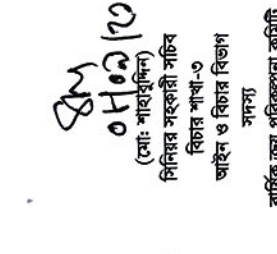 (মোঃ শাহাবুদ্দিন)
সিনিয়র সহকারী সচিব
বিচার শাখা-৩
আইন ও বিচার বিভাগ
সদস্য
বার্ষিক ক্রয় পরিকল্পনা কমিটি